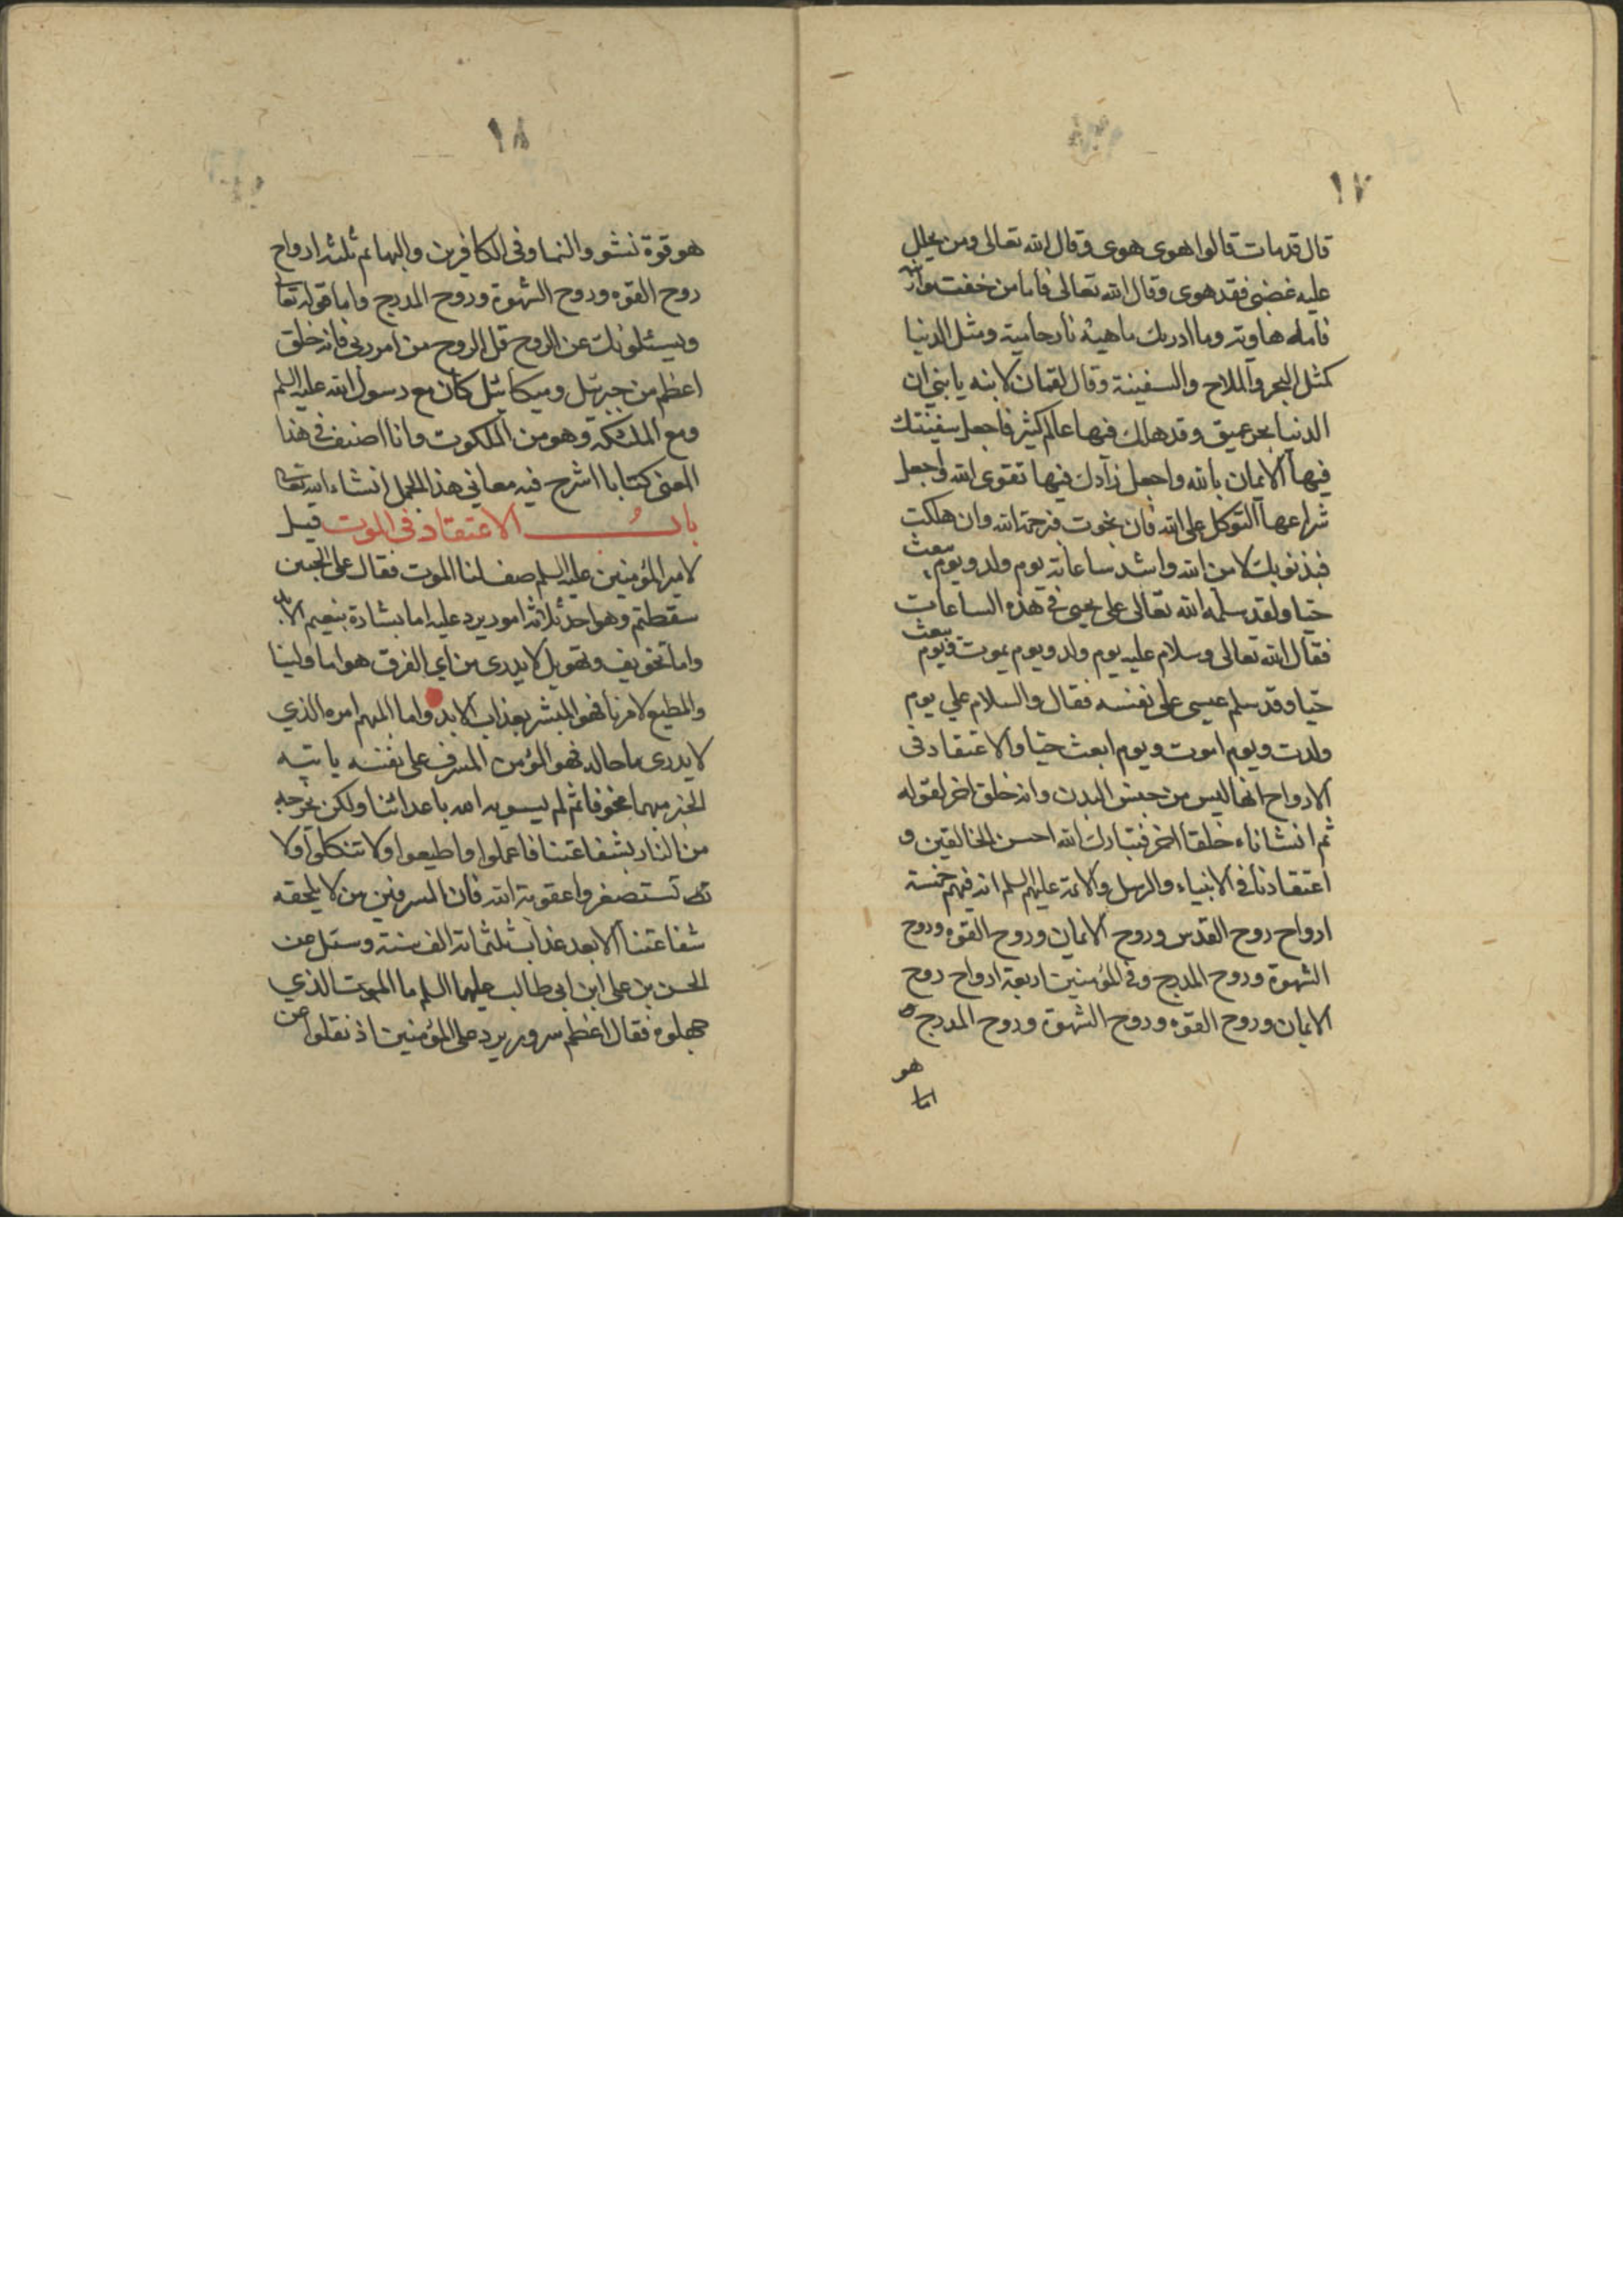 ١٧
قال قدمات قالوا هوى هوى وقال الله تعالى ومن يحلل
عليه غضبى فقد هوى وقال الله تعالى فاما من خفت موازينه
فامه هاوية وما ادريك ماهيه نار حامية ومثل الدنيا
كمثل البحر والملاح والسفينة وقال لقمان لابنه يا بني ان
الدنيا بحر عميق وقد هلك فيها عالم كثير فاجعل سفينتك
فيها الايمان بالله واجعل زادك فيها تقوى الله واجعل
شراعها التوكل على الله فان نجوت فبرحمة الله وان هلكت
فبذنوبك لا من الله واشد ساعاته يوم ولد ويوم يبعث
حيا ولقد سلم الله تعالى على يحيى فى هذه الساعات
فقال الله تعالى وسلام عليه يوم ولد ويوم يموت ويوم يبعث
حيا وقد سلم عيسى على نفسه فقال والسلام علي يوم
ولدت ويوم اموت ويوم ابعث حيا والاعتقاد فى
الارواح انها ليس من جنس البدن وانه خلق اخر لقوله
ثم انشاناه خلقا اخر فتبارك الله احسن الخالقين و
اعتقادنا فى الانبياء والرسل والائمة عليهم السلم انه فيهم خمسة
ارواح روح القدس وروح الايمان وروح القوه وروح
الشهوة وروح المدرج وفى المؤمنين اربعة ارواح روح
الايمان وروح القوه وروح الشهوة وروح المدرج و
هو
اما
١٨
هو قوة نشو والنما وفى الكافرين والبهائم ثلثه ارواح
روح القوه وروح الشهوة وروح المدرج واما قوله تعا
ويسئلونك عن الروح قل الروح من امر ربى فانه خلق
اعظم من جبرئيل وميكائيل كان مع رسول الله عليه السلم
ومع الملئكة وهو من الملكوت وانا اصنف فى هذا
المعنى كتابا اشرح فيه معانى هذا المجمل انشاء الله تعا
باب الاعتقاد فى الموت قيل
لامير المؤمنين عليه السلم صف لنا الموت فقال على الخبير
سقطتم وهو احد ثلاثه امور يرد عليه اما بشارة بنعيم الابد
واما تخويف وتهويل لا يدرى من اي الفرق هو اما ولينا
والمطيع لامرنا فهو المبشر بعذاب الابد واما المبهم امره الذي
لا يدرى ما حاله فهو المؤمن المسرف على نفسه ياتيه
الخبر مبهما مخوفا ثم لم يسويه الله باعدائنا ولكن يخرجه
من النار بشفاعتنا فاعملوا واطيعوا ولا تتكلوا ولا
تستصغروا عقوبة الله فان المسرفين من لا يلحقه
شفاعتنا الا بعد عذاب ثلثمائة الف سنة وسئل عن
الحسن بن على ابن ابى طالب عليهما السلم ما الموت الذي
جهلوه فقال اعظم سرور يرد على المؤمنين اذ نقلوا من